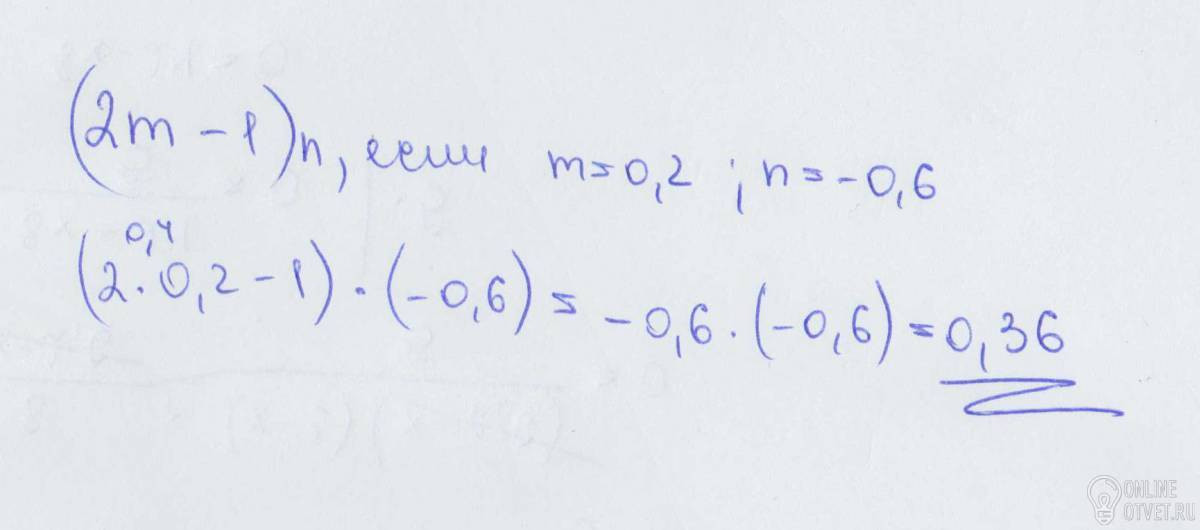 (2m - 1)n, если m=0,2 ; n=-0,6
0,4
(2·0,2-1)·(-0,6)= -0,6·(-0,6)=0,36
ONLINE
OTVET.RU